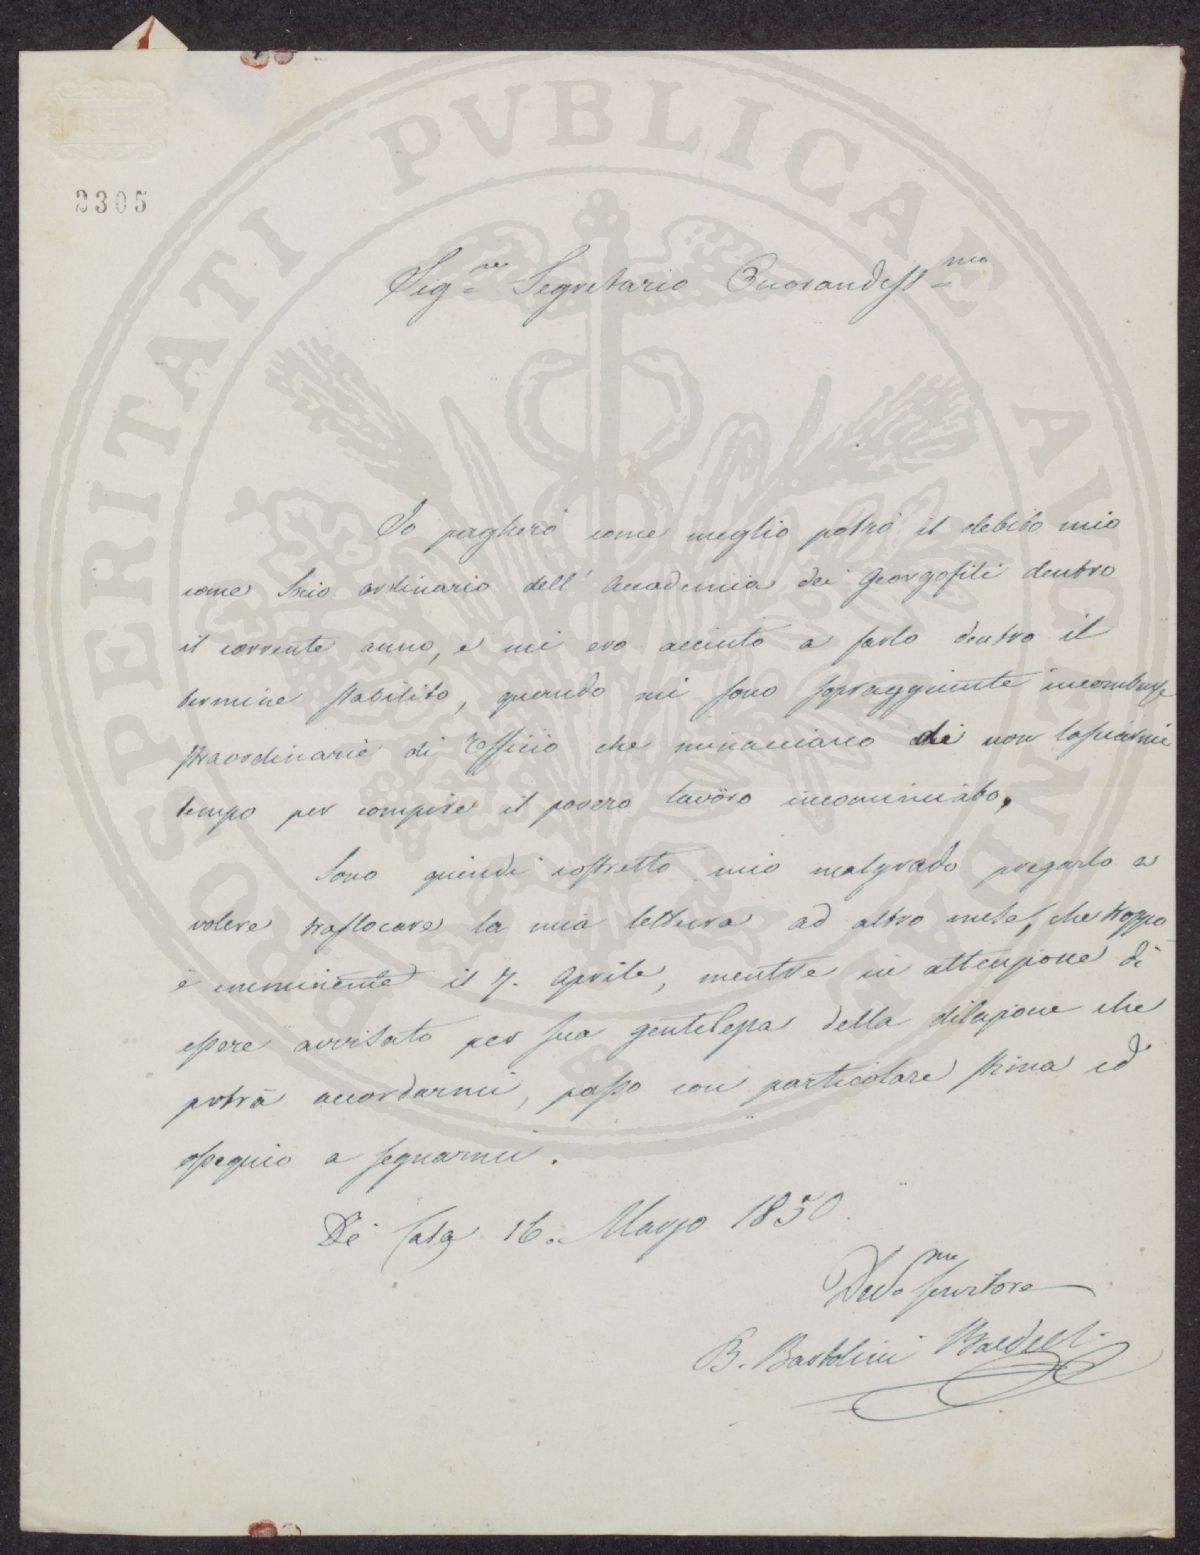 PROSPERITATI PVBLICAE AVGENDAE
2305
Sig.re Segretario Onorandiss.mo
Io pagherò come meglio potrò il debito mio
come Socio ordinario dell' Accademia dei Georgofili dentro
il corrente anno, e mi ero accinto a farlo dentro il
termine stabilito, quando mi sono sopraggiunte incombenze
straordinarie di Offizio che minacciano di non lasciarmi
tempo per compire il povero lavoro incominciato.
Sono quindi costretto mio malgrado pregarlo a
volere traslocare la mia lettura ad altro mese, che troppo
è imminente il 7. Aprile, mentre in attenzione di
essere avvisato per sua gentilezza della dilazione che
potrà accordarmi, passo con particolare stima ed
ossequio a segnarmi.
Di Casa 16. Marzo 1850.
Dev.mo Servitore
B. Bartolini Baldelli